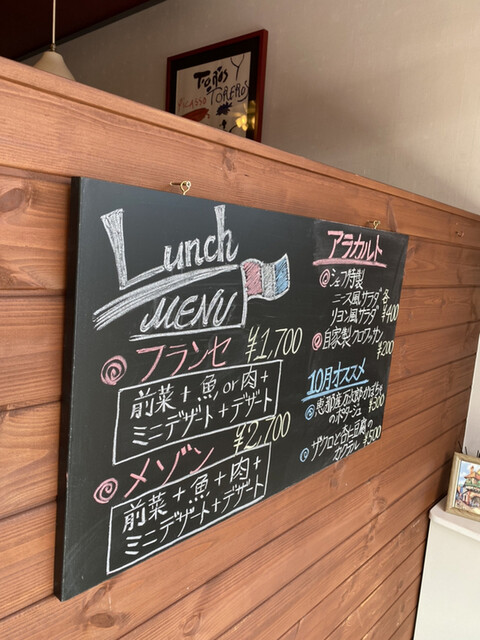 TOROS Y
TOREROS
PICASSO
Lunch
MENU
フランセ ¥1,700
前菜+魚or肉+
ミニデザート+デザート
メゾン ¥2,700
前菜+魚+肉+
ミニデザート+デザート
アラカルト
シェフ特製
ニース風サラダ 各
リヨン風サラダ ¥1,400
自家製クロワッサン
¥200
10月オススメ
恵那産万次郎かぼちゃ
のポタージュ ¥500
ザクロと杏仁豆腐の
カクテル ¥500